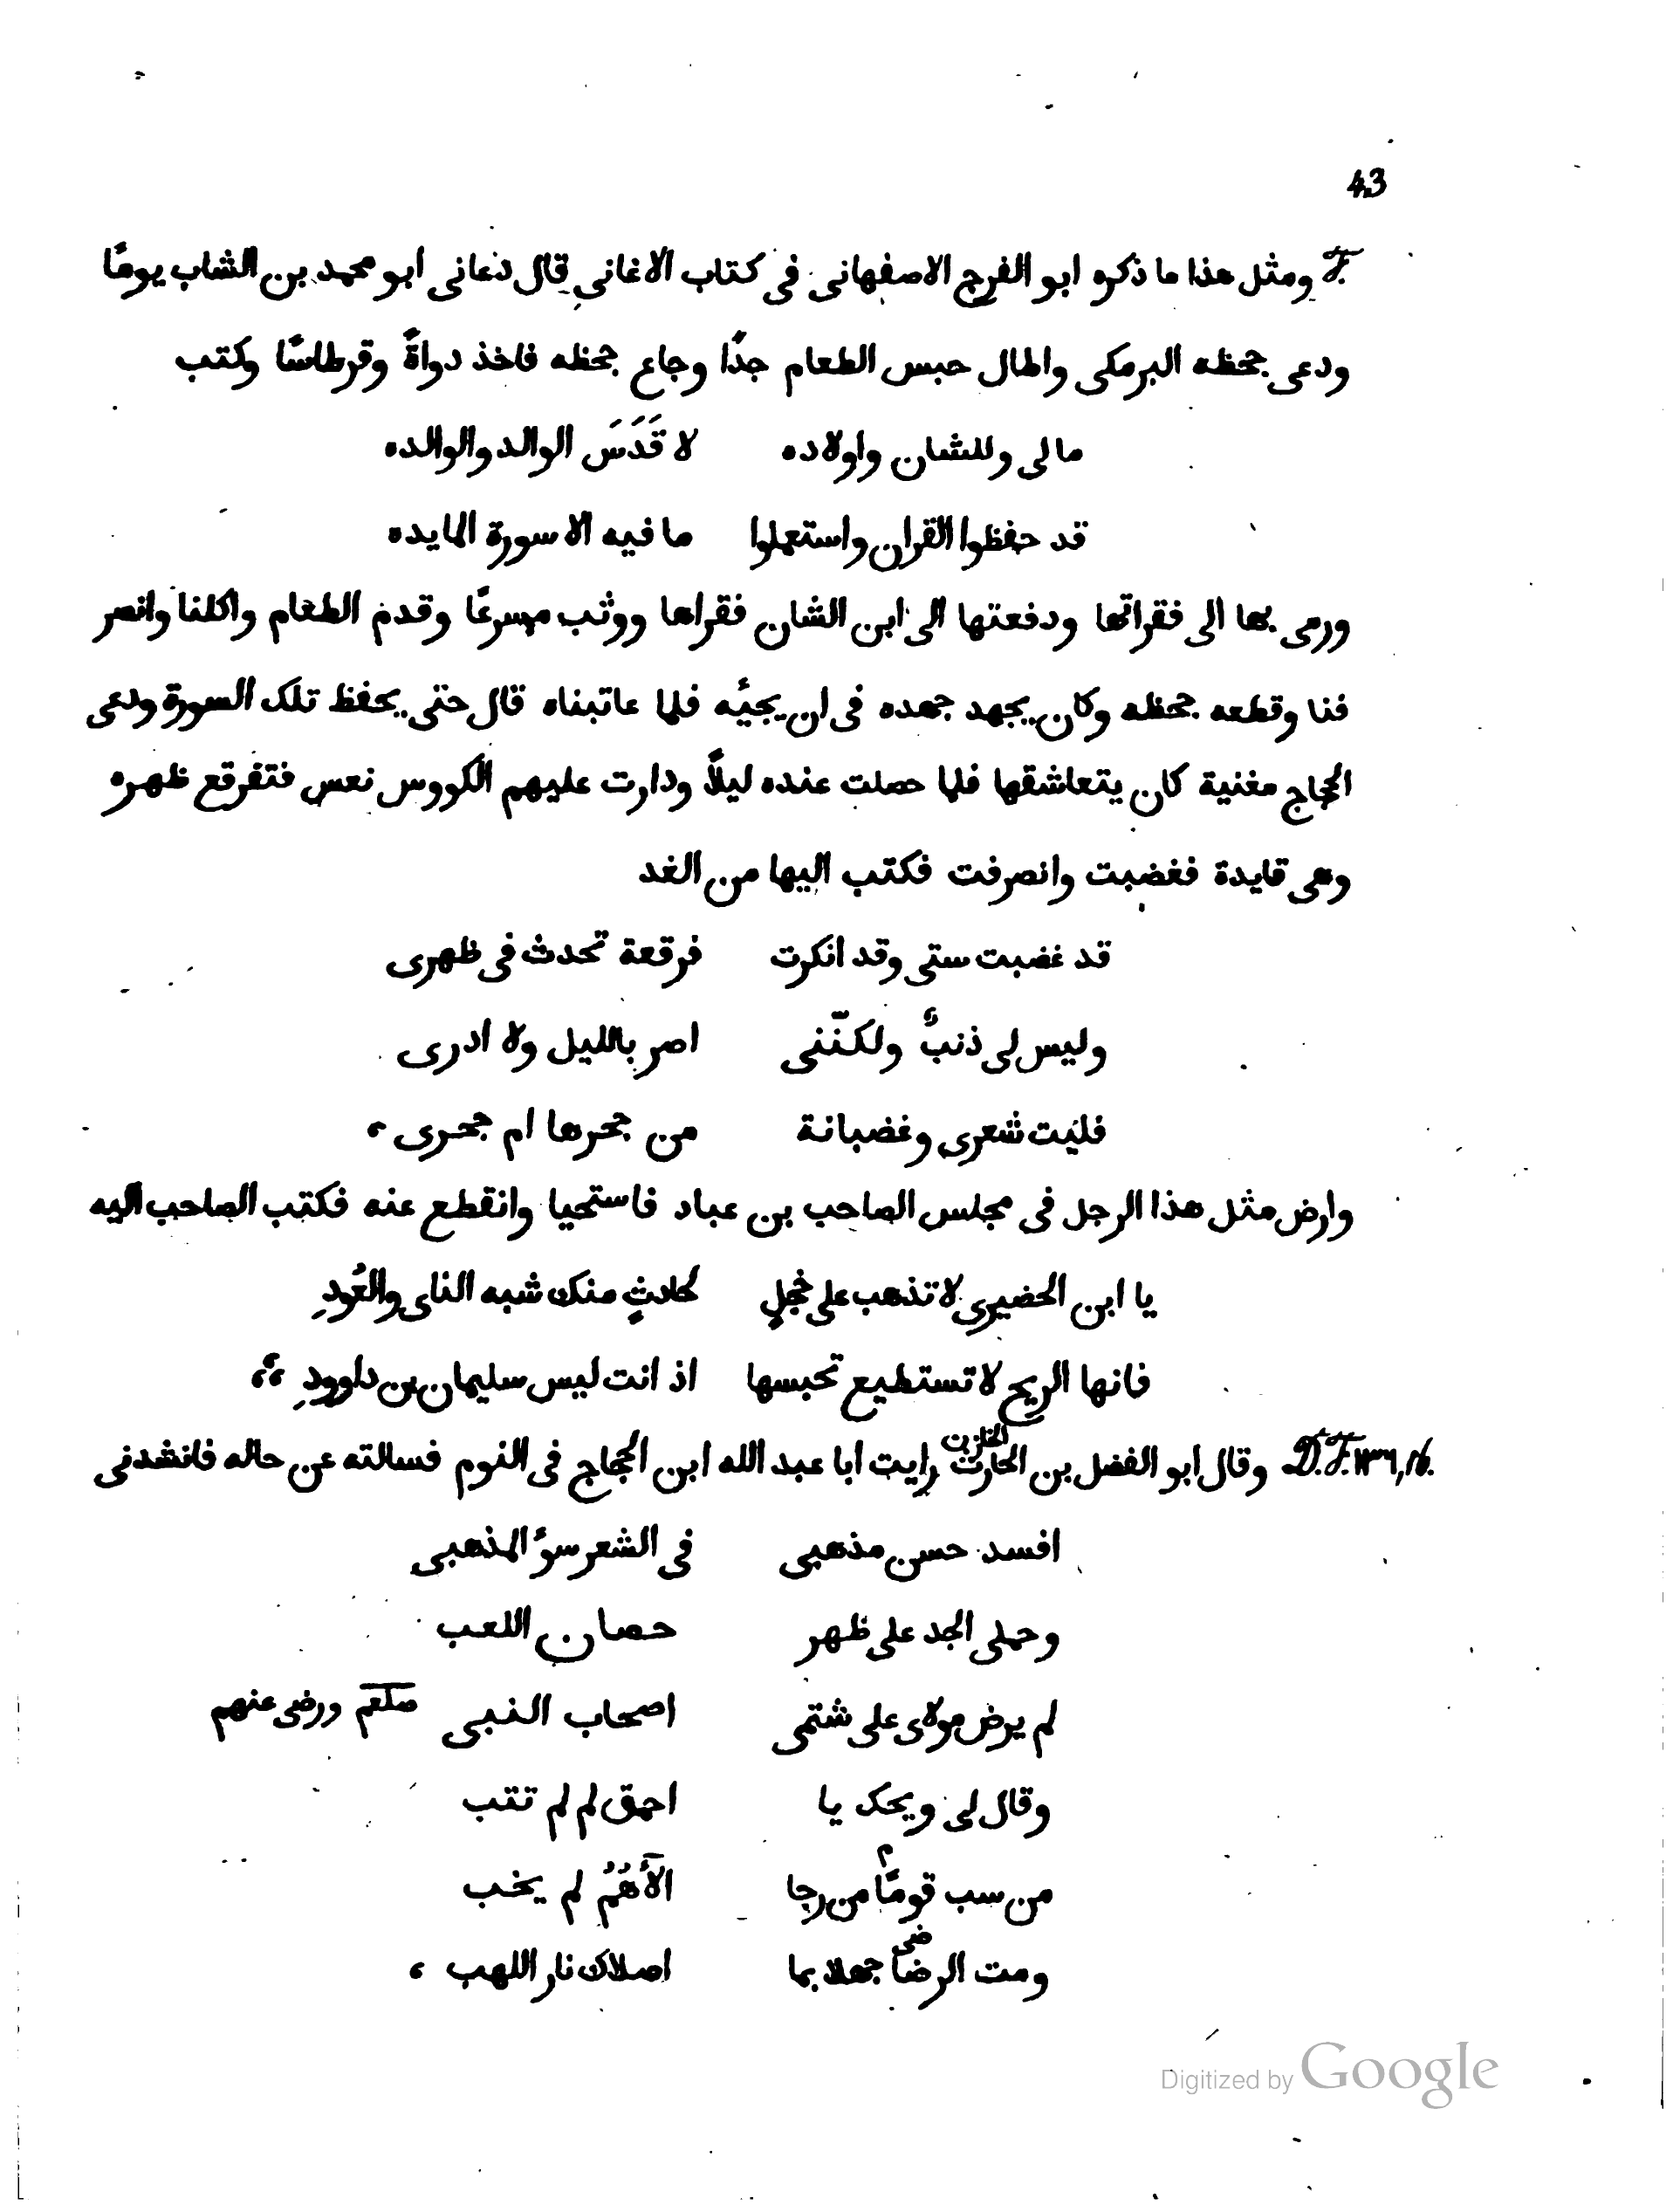 43
F. ومثل هذا ما ذكره ابو الفرج الاصفهانى فى كتاب الاغانى قال دعانى ابو محمد بن الشاب يومًا
ودعى جحظه البرمكى واطال حبس الطعام جدًا وجاع جحظه فاخذ دواةً وقرطاسًا وكتب
مالى وللشان واولاده لا قَدَسَ الوالد والوالده
قد حفظوا القران واستعملوا ما فيه الا سورة المايده
ورمى بها الى فقراتها ودفعتها الى ابن الشان فقراها ووثب مسرعًا وقدم الطعام واكلنا وانصر
فنا وقطعه جحظه وكان يجهد جهده فى ان يجيئه فلما عاتبناه قال حتى يحفظ تلك السورة ودعى
الحجاج مغنية كان يتعاشقها فلما حصلت عنده ليلاً ودارت عليهم الكووس نعس فتفرقع ظهره
وهى قايدة فغضبت وانصرفت فكتب اليها من الغد
قد غضبت ستى وقد انكرت فرقعة تحدث فى ظهرى
وليس لى ذنبٌ ولكنّنى اصر بالليل ولا ادرى
فليت شعرى وغضبانة من جحرها ام جحرى ،
وارض مثل هذا الرجل فى مجلس الصاحب بن عباد فاستحيا وانقطع عنه فكتب الصاحب اليه
يا ابن الحضيرى لا تذهب على خجلٍ لحادثٍ منك شبه الناى والعُودِ
فانها الريح لا تستطيع تحبسها اذ انت ليس سليمان بن داوودِ ،،
D.F. ١٣٦, 16. وقال ابو الفضل بن الحارث الخازن رايت ابا عبد الله ابن الحجاج فى النوم فسالته عن حاله فانشدنى
افسد حسن مذهبى فى الشعر سوُ المذهبى
وحملى الجد على ظهر حصان اللعب
لم يرض مولاى على شتمى اصحاب النبى صلعم ورضى عنهم
وقال لى ويحك يا احمق لم لم تتب
من سب قومًا م من رجا الآهُمُ لم يخب
ومت الرضا ضى جهلا بما اصلاك نار اللهب ،
Digitized by Google